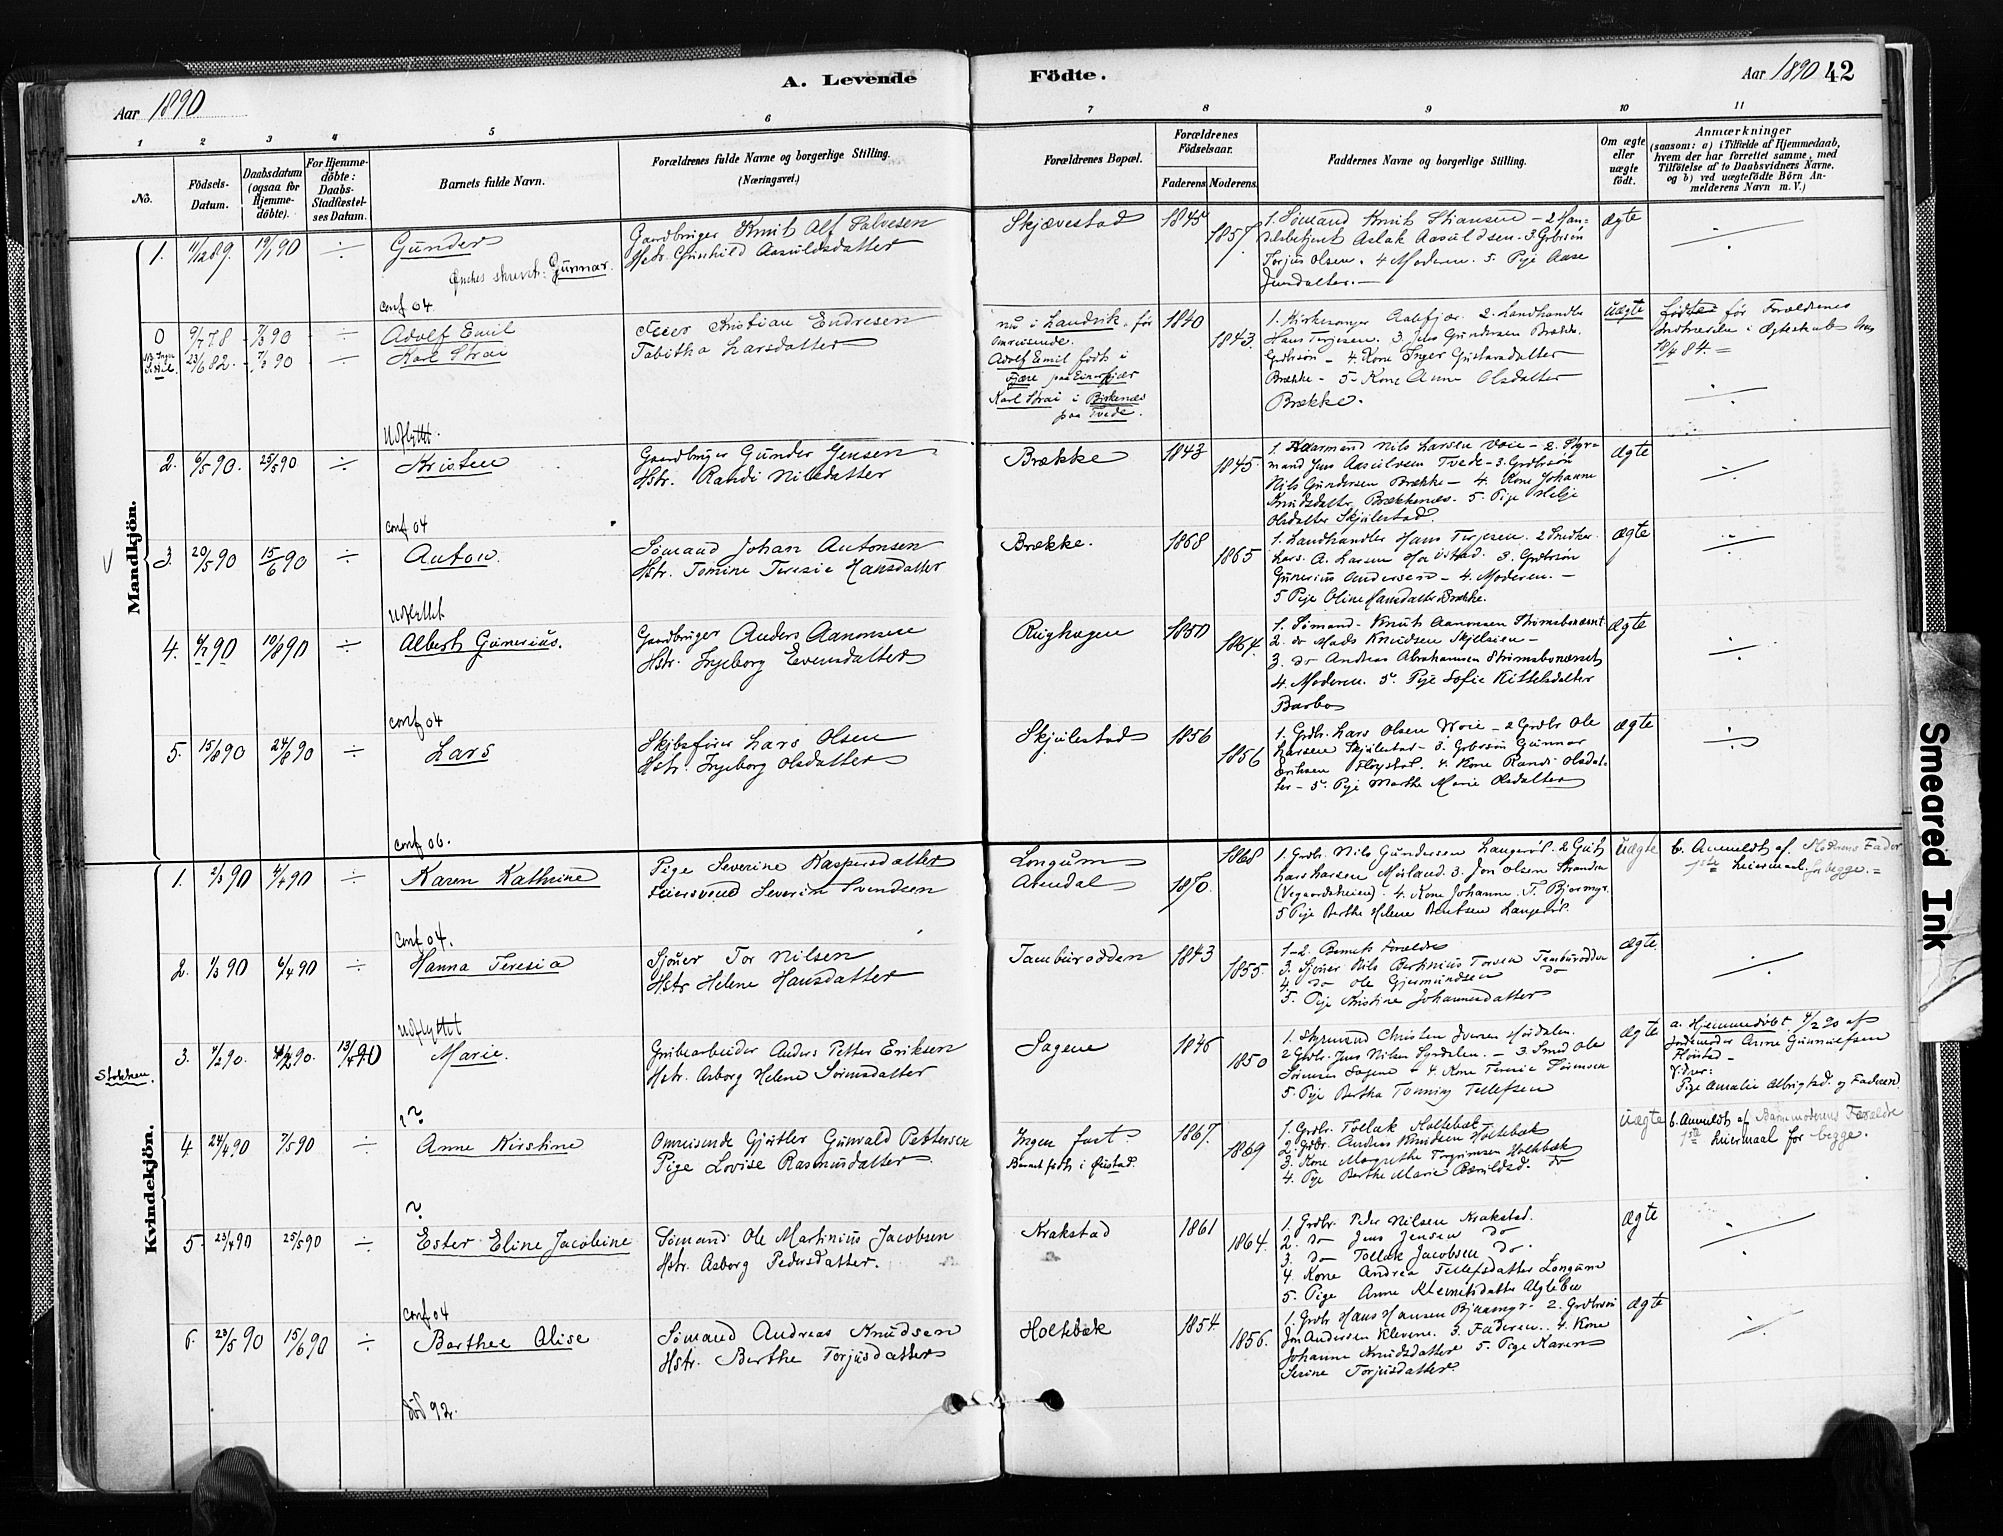 A. Levende
Födte.
Aar 1890
Aar 1890 42
1 2 3 4 5 6 7 8 9 10 11
No.
Födsels-
Datum.
Daabsdatum
(ogsaa for
Hjemme-
döbte).
For Hjemme-
döbte:
Daabs-
Stadfæstel-
ses Datum.
Barnets fulde Navn.
Forældrenes fulde Navne og borgerlige Stilling.
(Næringsvei.)
Forældrenes Bopæl.
Forældrenes
Födselsaar.
Faderens. Moderens.
Faddernes Navne og borgerlige Stilling.
Om ægte
eller
uægte
født.
Anmærkninger
(saasom: a) i Tilfælde af Hjemmedaab,
hvem der har forrettet samme, med
Tilföielse af to Daabsvidners Navne,
og b) ved uægtefödte Börn An-
melderens Navn m. V.)
Mandkjön.
1. 11/12 89. 19/1 90 ÷
Gunder
Ønskes skrevet: Gunnar.
conf 04
Gaardbruger Knut Alf Salvesen
Hstr. Gunhild Aasuldsdatter
Skjævestad
1845
1857.
1. Sømand Knut Stiansen - 2 Han-
delsbetjent Aslak Aasuldsen. 3. Grdbrsøn
Torjus Olsen. 4 Moderen. 5. Pige Aase
Jensdatter. -
Ægte
0 9/7 78 7/3 90 ÷
Adolf Emil
23/6 82. 7/3 90 ÷
Karl Strai
Udflyttet.
Peder Kristian Endresen
Tabitha Larsdatter
nu i Landvik, før
Omreisende.
Adolf Emil født i
Fjære paa
Karl Strai i Birkenæs
paa Tvede.
1840
1843.
1. Kirkesanger Aabefjær 2. Landhandler
Hans Terjesen. 3. Jens Gundersen Brække.
Grdbrsøn - 4. Kone Inger Gustavsdatter
Brække - 5. Kone Anne Olsdatter
Brække.
Uægte
født før Forældrenes
Indtræden i Ægteskab
18/4 84. =
2. 6/5 90. 25/5 90 ÷
Kristen
conf 04
Gaardbruger Gunder Jensen
Hstr. Randi Nilsdatter
Brække
1843
1845.
1. Nils Larsen Voie - 2. Styr-
mand Jens Aasulvsen Tvede - 3. Grdbrsøn
Nils Gundersen Brække - 4. Kone Johanne
Knudsdatter Brækkenæs. 5. Pige Helje
Olsdatter Skjulestad.
Ægte
3. 20/5 90 15/6 90 ÷
Anton.
Udflyttet
Sømand Johan Antonsen
Hstr. Tomine Teresie Hansdatter
Brække.
1868
1865
1. Landhandler Hans Terjesen. 2 Snedker
Lars A. Larsen. 3. Grdbrsøn
Gunerius Andersen - 4. Moderen. -
5 Pige Oline Hansdatter Brække.
Ægte
4. 6/7 90 10/8 90 ÷
Albert Gunerius.
conf 04
Gaardbruger Anders Aanonsen
Hstr. Ingeborg Evensdatter
Rughagen
1850
1864.
1. Sømand Knut Aanonsen Strømsbonæset
2. do Mads Knudsen
3. do Andreas Abrahamsen Strømsbonæsset
4. Moderen. 5. Pige Sofie Kittelsdatter
Barbo
Ægte
5. 15/8 90 24/8 90 ÷
Lars
conf 06.
Skibsfører Lars Olsen
Hstr. Ingeborg Olsdatter
Skjulestad
1856
1856
1. Grdbr. Lars Olsen Voie - 2 Grdbr Ole
Larsen Skjulestad - 3. Grbrsøn Gunnar
Eriksen Fløystad. 4. Kone Randi Olsdat-
ter - 5. Pige Marthe Marie Olsdatter
Ægte
Kvindekjön.
1. 2/3 90 4/4 90 ÷
Karen Kathrine
conf 04.
Pige Severine Kaspersdatter
Feiersvend Severin Svendsen
Longum
Arendal
1868
1870.
1. Grdbr. Nils Gundersen 2 Gut
Lars Larsen Mørland. 3. Jon Olsen Stranden
(Vegaardsheien). 4. Kone Johanne T. Bjormyr.
5 Pige Berthe Helene Bentsen
Uægte
b. Anmeldt af Moderens Fader
1ste Leiermaal for begge. =
2. 1/3 90 6/4 90 ÷
Hanna Teresia
Udflyttet
Sjöuer Tor Nilsen
Hstr Helene Hansdatter
Tamburodden
1843
1855.
1-2. Barnets Forældre
3. Sjöuer Nils Bertinius Torsen Tamburodden
4. do Ole Gjermundsen do
5. Pige Kristine Johannesdatter
Ægte
Stokken.
3. 4/2 90. 13/4 90
Marie.
?
Grubearbeider Anders Petter Eriksen
Hstr. Asborg Helene Sørensdatter
Sagene
1846
1850
1. Styrmand Christen Iversen
2 Grdbr. Jens Nilsen - 3. Smed Ole
Sørensen Sagene - 4. Kone Teresie Sørensen
5. Pige Bertha Tonning Tellefsen
Ægte
a. Hjemmedøbt 4/2 90 af
Jordmoder Anne Gunnulfsen
Fløistad -
Vidner:
Pige Amalie og Faderen
4 24/4 90 7/5 90 ÷
Anne Kirstine
?
Omreisende Gjørtler Gunvald Pettersen
Pige Lovise Rasmusdatter.
Ingen fast.
Barnet født i Øustad.
1867.
1869
1. Grdbr. Tollak Holtebæk
2. Grdbr. Andreas Knudsen Holtebæk
3. Kone Margrethe Torgrimsen Holtebæk
4. Pige Berthe Marie do
Uægte
b. Anmeldt af Barnemoderens Forældre
1ste Leiermaal for begge.
5. 23/4 90 25/5 90 ÷
Ester Eline Jacobine
conf 04
Sømand Ole Martinius Jacobsen
Hstr. Asborg Pedersdatter.
Krakstad
1861
1864.
1. Grdbr. Peder Nilsen Krakstad.
2. do Jens Jensen do
3. do Tollak Jacobsen do.
4. Kone Andrea Tellefsdatter Longum
5. Pige Anne Klemetsdatter
Ægte
6. 23/5 90 15/6 90 ÷
Berthee Alise
død 92.
Sømand Andreas Knudsen
Hstr. Berthe Torjusdatter
Holtebæk
1854
1856.
1. Grdbr Hans Hansen Bjormyr - 2. Grdbrsøn
Jon Andersen Klevene. 3. Faderen. 4. Kone
Johanne Knudsdatter 5. Pige Karen
Serine Torjusdatter.
Ægte
Smeared Ink